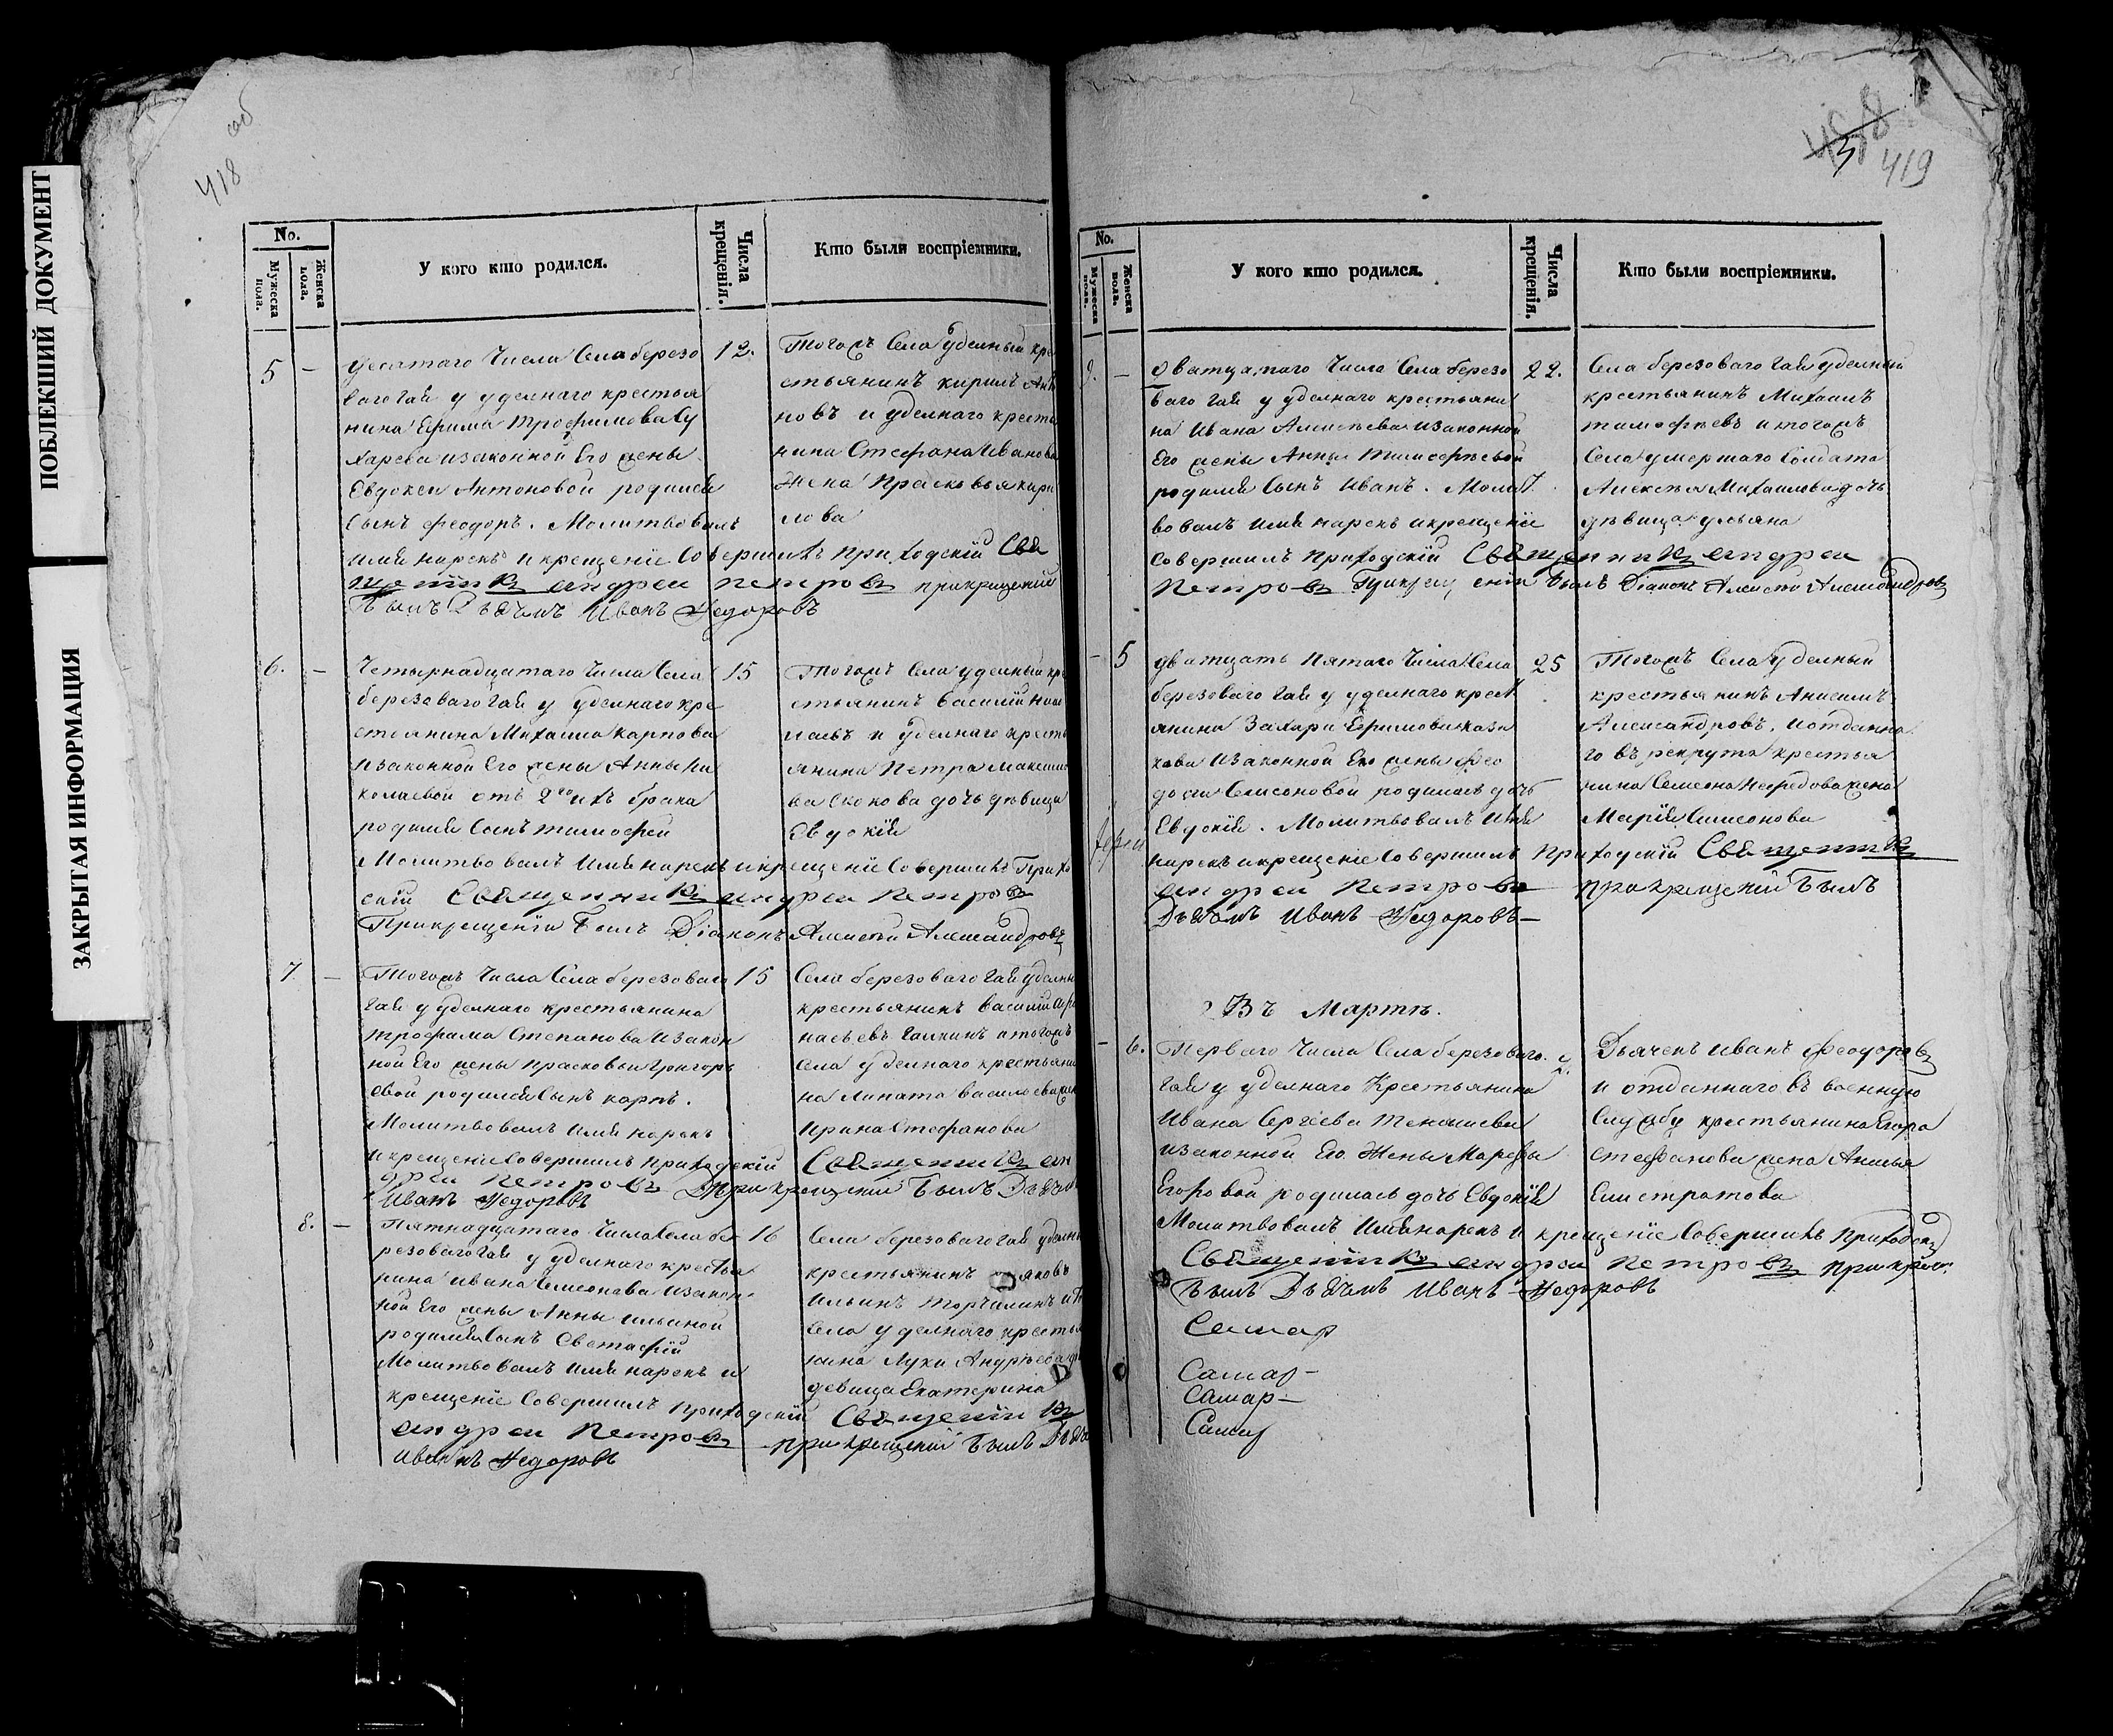 ПОБЛЕКШИЙ ДОКУМЕНТ
ЗАКРЫТАЯ ИНФОРМАЦИЯ
418 об
No.
Мужеска пола.
Женска пола.
У кого кто родился.
Числа крещенія.
Кто были воспріемники.
5 — Десятаго Числа Села березо
ваго Гая у уделнаго крестья
нина Ефима Трофимова Су
харева изаконной Его жены
Евдокеи Антоновой родился
Сынъ Феодоръ. Молитвовалъ
имя нарекъ и крещеніе Совершилъ приходскій Свя
щенникъ андреи петровъ прикрещеніи
Былъ Дьячекъ Иванъ Федоровъ
12.
Тогожъ Села уделный кре
стьянинъ кирилъ Анто
новъ и уделнаго крестя
нина Стефана Иванова
Жена Прасковья кири
лова
6. — Четырнадцатаго Числа Села
березоваго Гая у уделнаго кре
стьянина Михаила Карпова
изаконной Его жены Анны Ни
колаевой отъ 2го ихъ брака
родился Сынъ тимофей
Молитвовалъ Имя нарекъ и крещеніе Совершилъ Прихо
скій Священникъ андреи петровъ
Прикрещеніи Былъ Діаконъ Алексей Александровъ
15
Тогожъ Села уделный кре
стьянинъ василій Ни
лаевъ и уделнаго кресть
янина Петра Максимо
ва Скокова дочь девица
Евдокія
7 — Тогожъ Числа Села березоваго
Гая у уделнаго крестьянина
трофима Степанова изакон
ной Его жены прасковьи Григорь
евой родился Сынъ карпъ.
Молитвовалъ имя нарекъ
и крещеніе Совершилъ приходскій Священникъ ан
дреи петровъ При крещеніи Былъ Дьячекъ
Иванъ Федоровъ
15
Села березоваго Гая уделны
крестьянинъ василій Афа
насьевъ Галкинъ и тогожъ
села уделнаго крестьяни
на Липата василева жен
Ирина Стефанова
8. — Пятнадцатаго Числа Села бе
резоваго Гая у уделнаго крестья
нина ивана Семенова изакон
ной Его жены Анны ильиной
родился Сынъ
Молитвовалъ имя нарекъ и
крещеніе Совершилъ приходскій Священникъ
андреи Петровъ прикрещеніи Былъ Дьяче
Иванъ Федоровъ
16
Села березоваго Гая уделны
крестьянинъ яковъ
Ильинъ
Села уделнаго крестья
нина Луки Андреева до
девица Екатерина
419
No.
Мужеска пола.
Женска пола.
У кого кто родился.
Числа крещенія.
Кто были воспріемники.
9. — Дватцатаго Числа Села березо
ваго Гая у уделнаго крестьяни
на Ивана Алексеева изаконной
Его жены Анны Тимофеевой
родился Сынъ Иванъ. Молит
вовалъ имя нарекъ и крещеніе
Совершилъ приходскій Священникъ андреи
петровъ Прикрещеніи Былъ Діаконъ Алексеи Александровъ
22.
Села березоваго Гая уделный
крестьянинъ Михаилъ
тимофеевъ и тогожъ
Села умершаго Солдата
Алексея Михаилова дочь
девица ульяна
— 5 дватцать пятаго Числа Села
березоваго Гая у уделнаго крест
янина Захара Ефимова Каза
кова изаконной Его жены Фео
досіи Семеоновой родилась дочь
Евдокія. Молитвовалъ Имя
нарекъ и крещеніе Совершилъ Приходскій Священникъ
андреи петровъ прикрещеніи Былъ
Дьячекъ Иванъ Федоровъ
25
Тогожъ Села уделный
крестьянинъ Анисимъ
Александровъ. и отданна
го въ рекрута крестья
нина Семена Нефедова жена
Марія Симеонова
Въ Марте.
— 6. Перваго Числа Села березоваго
Гая у уделнаго Крестьянина
Ивана Сергеева
изаконной Его Жены Марфы
Егоровой родилась дочь Евдокія
Молитвовалъ Имя нарекъ и крещеніе Совершилъ Приходскі
Священникъ андреи петровъ прикрещ.
Былъ Дьячекъ Иванъ Федоровъ
2.
Дьячекъ Иванъ Феодоровъ
и отданнаго въ военную
Службу крестьянина Егора
Стефанова жена Анисья
Елистратова
Самар
Самар
Самар